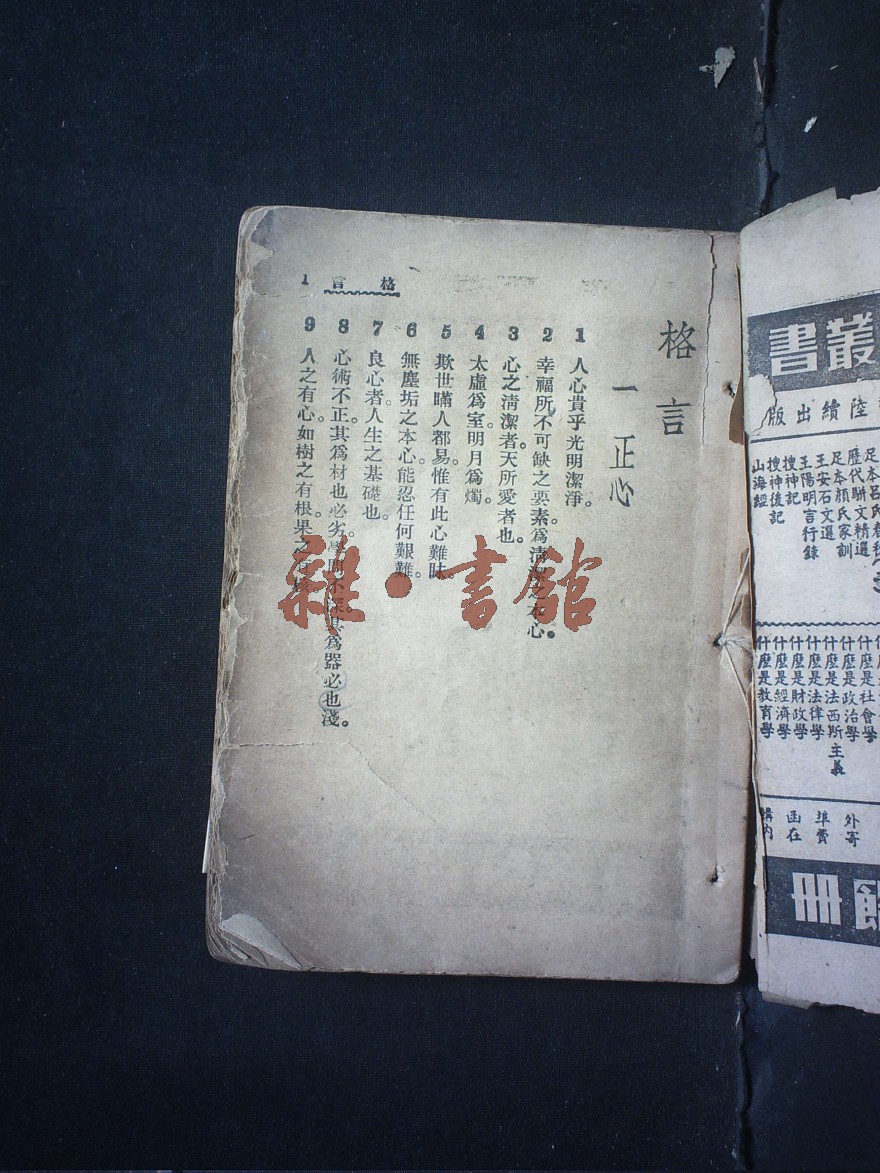 格言 1
格言
一 正心
1 人心貴乎光明潔淨。
2 幸福所不可缺之要素。爲清潔之本心。
3 心之清潔者。天所愛者也。
4 太虛爲室。明月爲燭。
5 欺世瞞人都易。惟有此心難昧。
6 無塵垢之本心。能忍任何艱難。
7 良心者。人生之基礎也。
8 心術不正。其爲材也必劣。學問不深。其爲器必也淺。
9 人之有心。如樹之有根。果之有
叢書
陸續出版
歷代駢文精選
足本顏氏家訓
王安石文選
王陽明言行錄
搜神記
搜神後記
山海經
什麼是社會學
什麼是政治學
什麼是法西斯主義
什麼是法律學
什麼是財政學
什麼是經濟學
什麼是教育學
外埠函購
寄費在內
冊
雜·書館